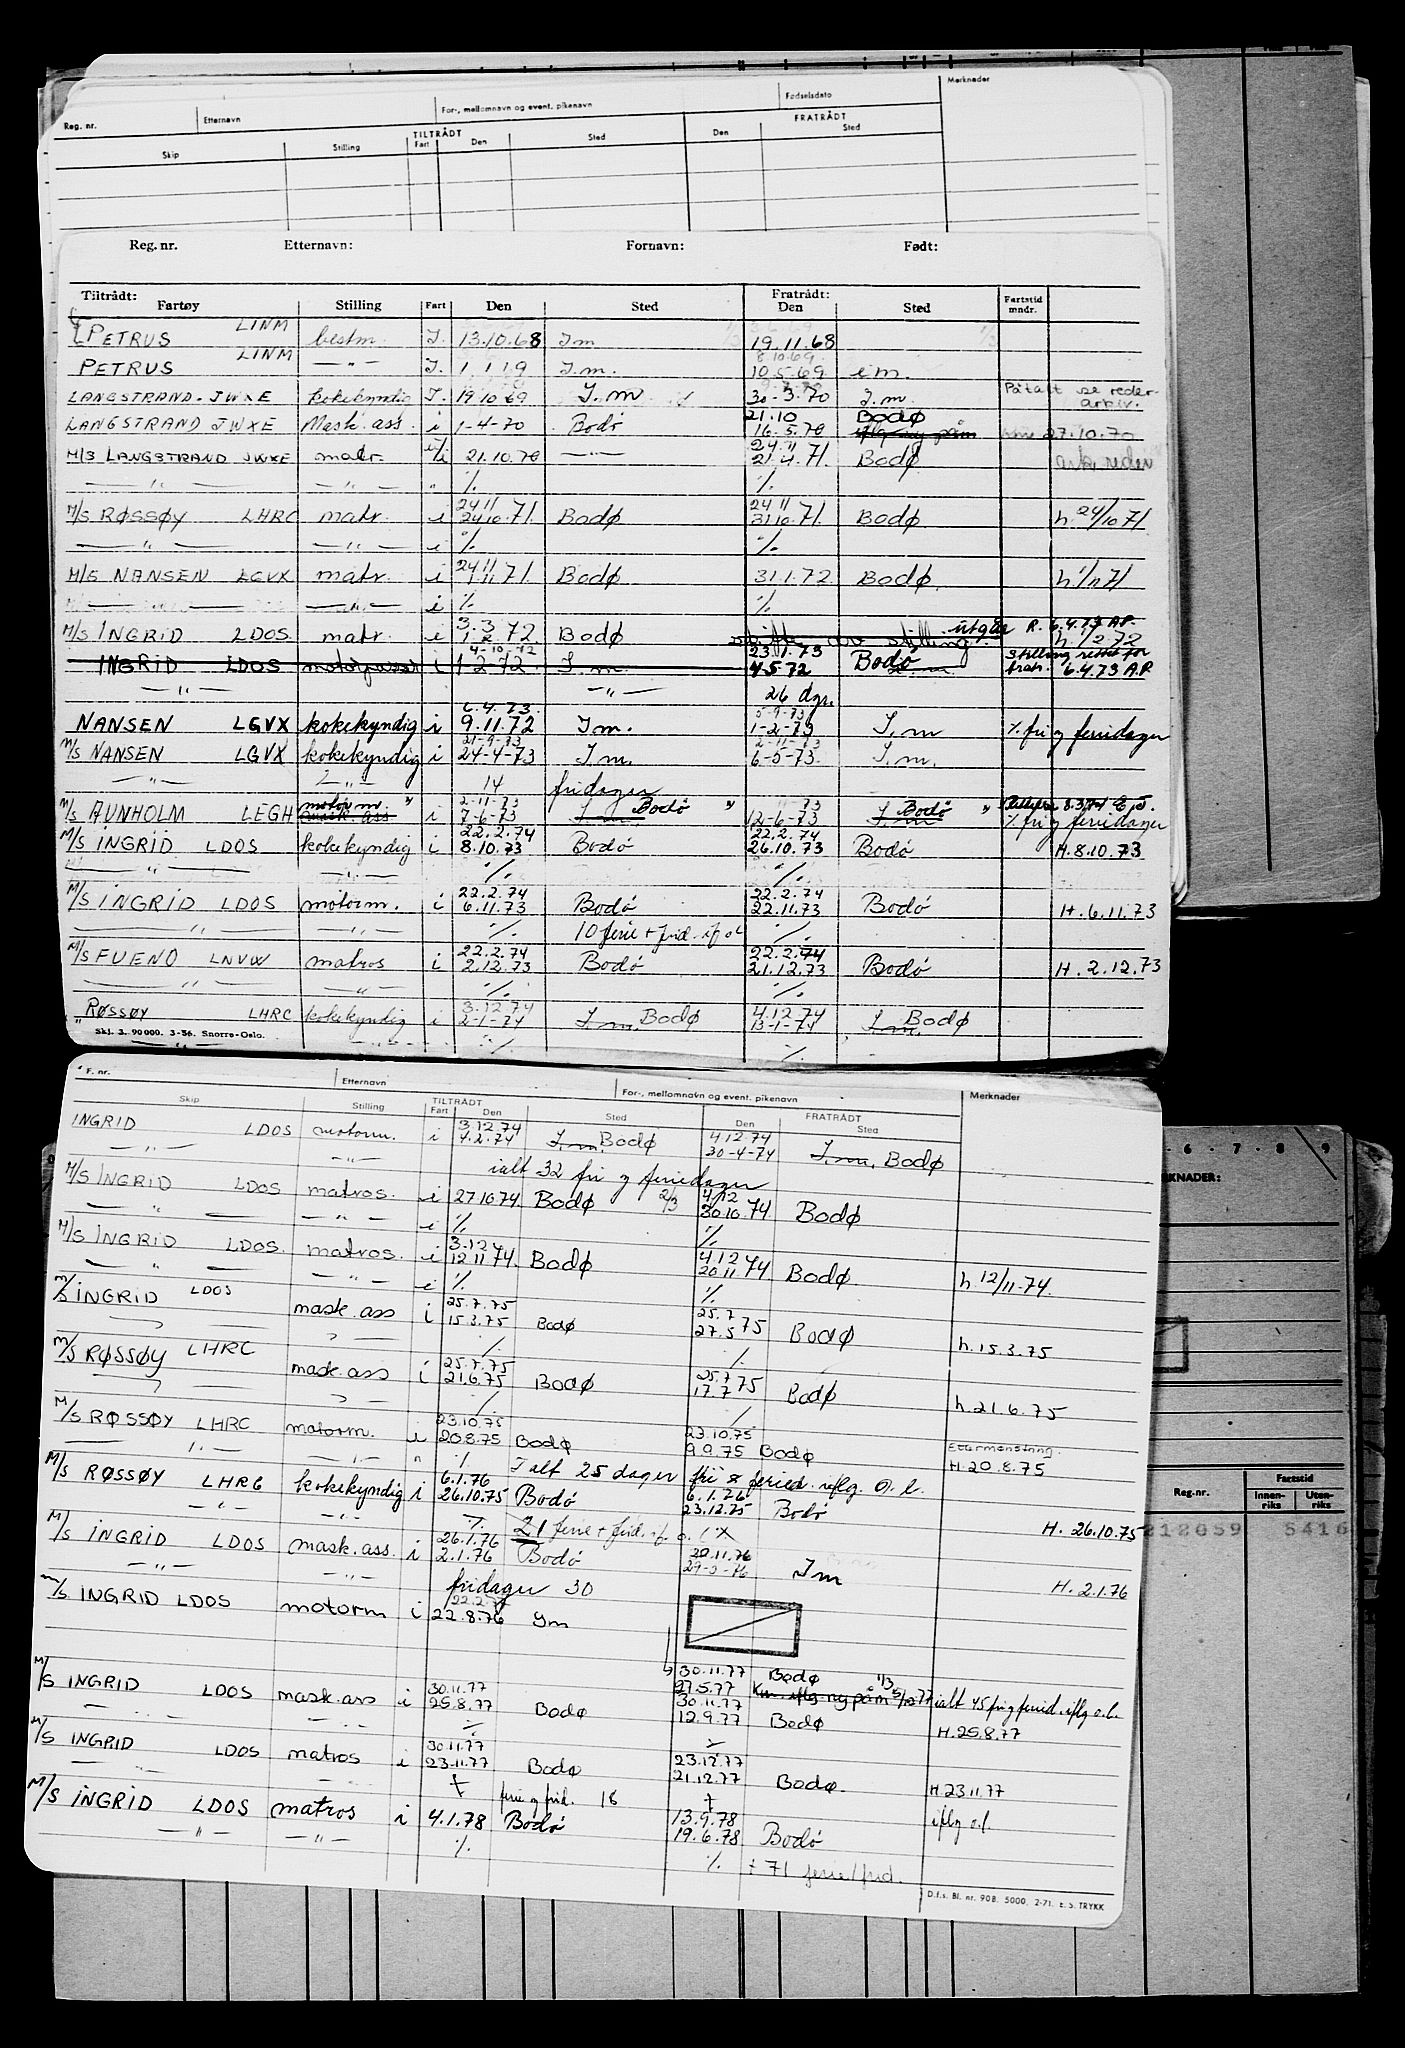 Merknader
Fødselsdato
For-, mellomnavn og event. pikenavn
Reg. nr. Etternavn
TILTRÅDT FRATRÅDT
Skip Stilling Fart Den Sted Den Sted
Reg. nr. Etternavn: Fornavn: Født:
Tiltrådt: Fratrådt:
Fartøy Stilling Fart Den Sted Den Sted Fartstid mndr.
PETRUS LINM bestm. I. 13.10.68 I m 19.11.68
8.10.69
PETRUS LINM —"— I. 1.1.19 I.m. 10.5.69 i m.
LANGSTRAND. JWXE kokekyndig I. 19.10.69 I.m 30-3.70 I.m. Påtalt se reder-
arkiv.
21.10 Bodø
LANGSTRAND JWXE Mask. ass. i 1-4-70 Bodø 16.5.70 iflg ny påm 27.10.70
24.11
M/S LANGSTRAND JWXE matr. i/i 21.10.70 —"— 21.4.71 Bodø ark. reder
—"— —"— " % %
24 11 24 11
M/S RØSSØY LHRC matr. i 24.10.71 Bodø 31.10.71 Bodø h. 24/10 71
—"— —"— i % %
24 11
M/S NANSEN LGVX matr. i 1.11.71 Bodø 31.1.72 Bodø h 1/11 71
—"— i % %
3.3.72 utgår R. 6.4.73 A.P.
M/S INGRID LDOS matr. i 1.2.72 Bodø skifte av stilling. h. 1/2 72
4-10-72 23.1.73 Stilling rettet for
INGRID LDOS i 1-2-72 I.m. 4.5.72 Bodø fratr. 6.4.73 A.P.
—"— —"— 26 dgr.
6.4.73 5-9-73
NANSEN LGVX kokekyndig i 9.11.72 I m. 1-2-73 I.m % fri og feriedager
21-9-73 2-11-73
M/S NANSEN LGVX kokekyndig i 24-4-73 I m. 6-5-73 I.m.
—"— —"— 14 fridager
motorm. " 2-11-73 Bodø " 73 Bodø "
M/S AUNHOLM LEGH mask. ass i 7-6-73 I.m 12-6-73 I.m % fri og feriedager
22.2.74 22.2.74
M/S INGRID LDOS kokekyndig i 8.10.73 Bodø 26.10.73 Bodø H. 8.10.73
—"— —"— % %
22.2.74 22.2.74
M/S INGRID LDOS motorm. i 6.11.73 Bodø 22.11.73 Bodø H. 6.11.73
—"— —"— % 10 ferie + frid. if o l %
22.2.74 22.2.74
M/S FUENO LNVW matros i 2.12.73 Bodø 21.12.73 Bodø H. 2.12.73
—"— —"— % %
3.12.74 4.12.74
RØSSØY LHRC kokekyndig i 2-1-74 I.m Bodø 13-1-74 I.m. Bodø
Skj. 3. 90 000. 3-56. Snorre-Oslo.
—"— % %
F. nr. Etternavn For-, mellomnavn og event. pikenavn Merknader
TILTRÅDT FRATRÅDT
Skip Stilling Fart Den Sted Den Sted
3.12.74 4.12.74
INGRID LDOS motorm. i 4.2.74 I.m. Bodø 30-4-74 I.m. Bodø
—"— —"— ialt 32 fri og feriedager
M/S INGRID LDOS matros. i 27.10.74. Bodø 2/3 4/12
30.10.74 Bodø
—"— —"— i % %
3.12 4.12
M/S INGRID LDOS. matros. i 12.11.74. Bodø 20.11.74 Bodø h. 12/11-74.
—"— —"— i % %
25.7.75 25.7
M/S INGRID LDOS mask. ass i 15.3.75 Bodø 27.5.75 Bodø h. 15.3.75
—"— % %
25.7.75 25.7
M/S RØSSØY LHRC mask. ass i 21.6.75 Bodø 17.7.75 Bodø h. 21.6.75
—"— % %
23.10.75 23.10.75
M/S RØSSØY LHRC motorm. i 20.8.75 Bodø 9.9.75 Bodø Ettermønstring.
H. 20.8.75
—"— —"— " % I alt 25 dager fri & feried. iflg. o. l.
6.1.76 6.1.76
M/S RØSSØY LHRC kokekyndig i 26.10.75 Bodø 23.12.75 Bodø H. 26.10.75
—"— —"— % 21 ferie + frid. if. o. l
26.1.76 20.11.76
M/S INGRID LDOS mask. ass. i 2.1.76 Bodø I m H. 2.1.76
—"— —"— fridager 30
M/S INGRID LDOS motorm i 22.8.76 Im
30.11.77 Bodø 1/3
27.5.77 ialt 45 fri og feried. iflg o.l.
30.11.77 30.11.77
M/S INGRID LDOS mask. ass i 25.8.77 Bodø 12.9.77 Bodø H. 25.8.77
—"— —"— % %
30.11.77 23.12.77
M/S INGRID LDOS matros i 23.11.77 Bodø 21.12.77 Bodø. H. 23.11.77
—"— ferie og frid. 18 iflg o.l.
13.9.78
M/S INGRID LDOS matros i 4.1.78 Bodø 19.6.78 Bodø
—"— —"— % % + 71 ferie/frid.
D.f.s. Bl. nr. 90B. 5000. 2-71. E. S. TRYKK
6 7 8 9
KNADER:
Reg.-nr. Fartstid
Innen-riks Uten-riks
212059 5416